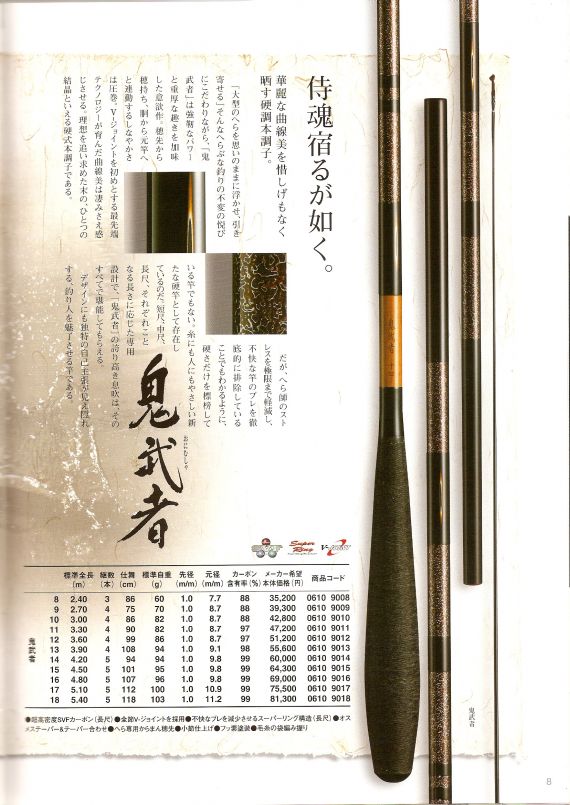 侍魂宿るが如く。
華麗な曲線美を惜しげもなく
晒す硬調本調子。
「大型のへらを思いのままに浮かせ、引き
寄せる」そんなへらぶな釣りの不変の悦び
にこだわりながら、「鬼
武者」は強靭なパワー
と重厚な趣きを加味
した意欲作。穂先から
穂持ち、胴から元竿へ
と連動するしなやかさ
は圧巻。V-ジョイントを初めとする最先端
テクノロジーが育んだ曲線美は凄みさえ感
じさせる。理想を追い求めた末の、ひとつの
結晶といえる硬式本調子である。
だが、へら師のスト
レスを極限まで軽減し、
不快な竿のブレを徹
底的に排除している
ことでもわかるように、
硬さだけを標榜して
いる竿でもない。糸にも人にもやさしい新
たな硬竿として存在し
ているのだ。短尺、中尺、
長尺、それぞれこと
なる長さに応じた専用
設計で、「鬼武者」の誇り高き息吹は、その
すべてで堪能してもらえる。
デザインにも独特の自己主張が見え隠れ
する、釣り人を魅了させる竿である。
鬼武者
おにむしゃ
Super Ring
V-Joint
標準全長(m) 継数(本) 仕舞(cm) 標準自重(g) 先径(m/m) 元径(m/m) カーボン含有率(%) メーカー希望本体価格(円) 商品コード
鬼武者
8 2.40 3 86 60 1.0 7.7 88 35,200 0610 9008
9 2.70 4 75 70 1.0 8.7 88 39,300 0610 9009
10 3.00 4 86 82 1.0 8.7 88 42,800 0610 9010
11 3.30 4 90 82 1.0 8.7 97 47,200 0610 9011
12 3.60 4 99 86 1.0 8.7 97 51,200 0610 9012
13 3.90 4 108 94 1.0 9.1 98 55,600 0610 9013
14 4.20 5 94 94 1.0 9.8 99 60,000 0610 9014
15 4.50 5 101 95 1.0 9.8 99 64,300 0610 9015
16 4.80 5 107 96 1.0 9.8 99 69,000 0610 9016
17 5.10 5 112 100 1.0 10.9 99 75,500 0610 9017
18 5.40 5 118 103 1.0 11.2 99 81,300 0610 9018
●超高密度SVFカーボン(長尺)●全節V-ジョイントを採用●不快なブレを減少させるスーパーリング構造(長尺)●オス
メステーパー&テーパー合わせ●へら専用からまん穂先●小節仕上げ●フッ素塗装●毛糸の袋編み握り
鬼武者
8